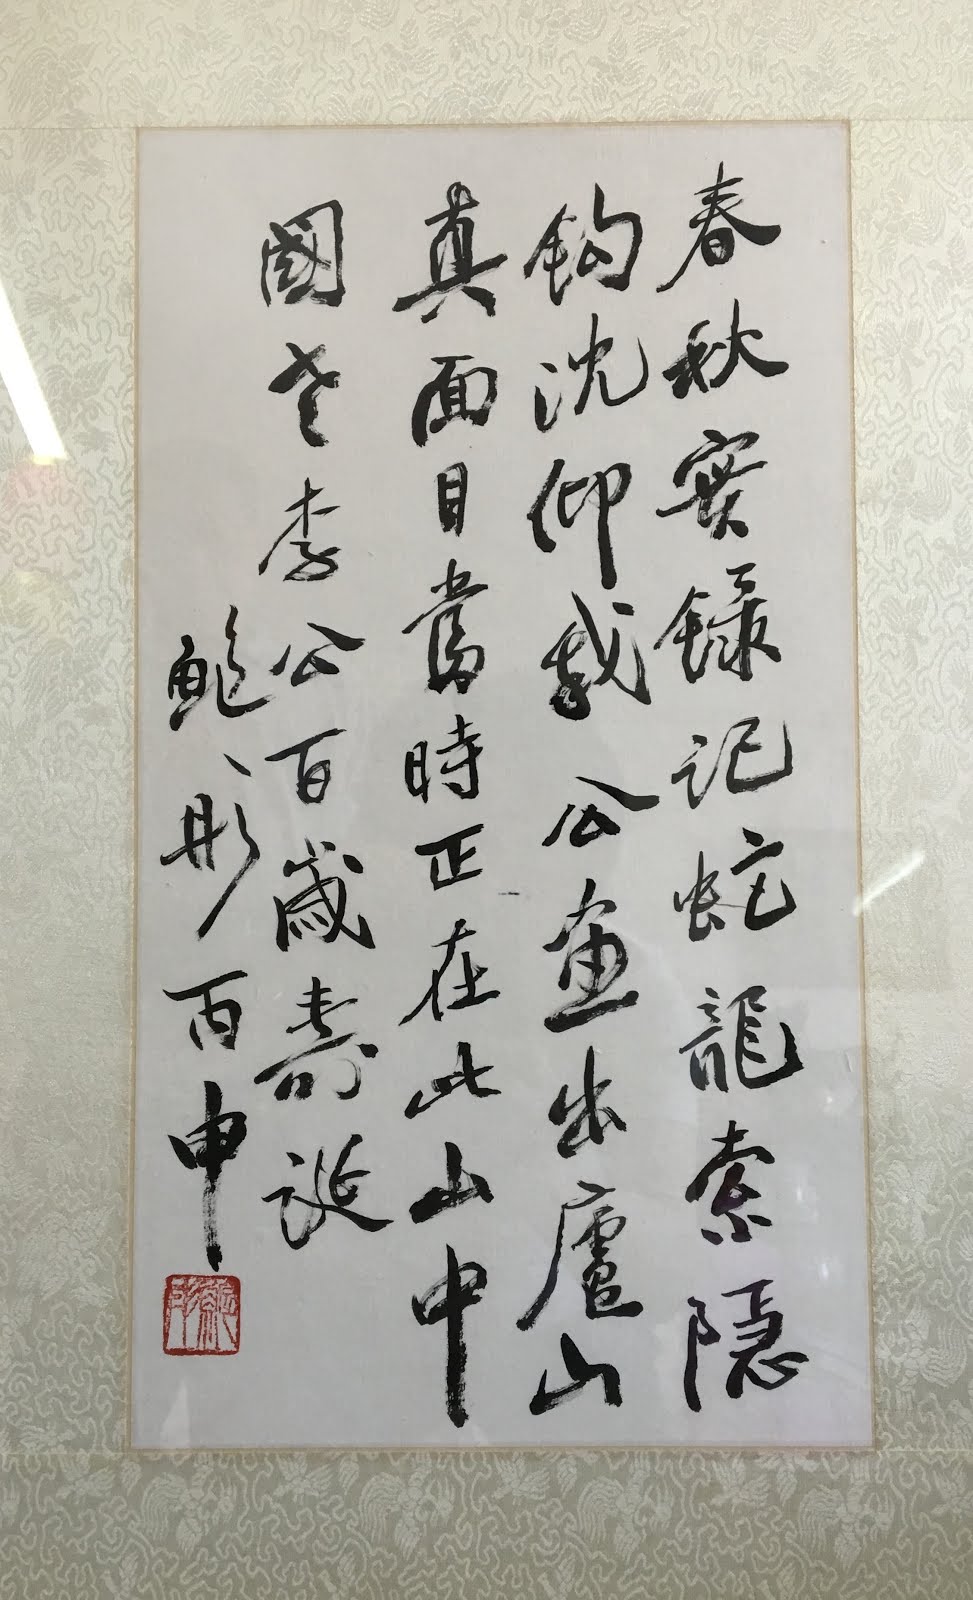 春秋實錄記蛇龍索隱
鈎沈仰我公畫出廬山
真面目當時正在此山中
國老李公百歲壽誕
鮑彤丙申